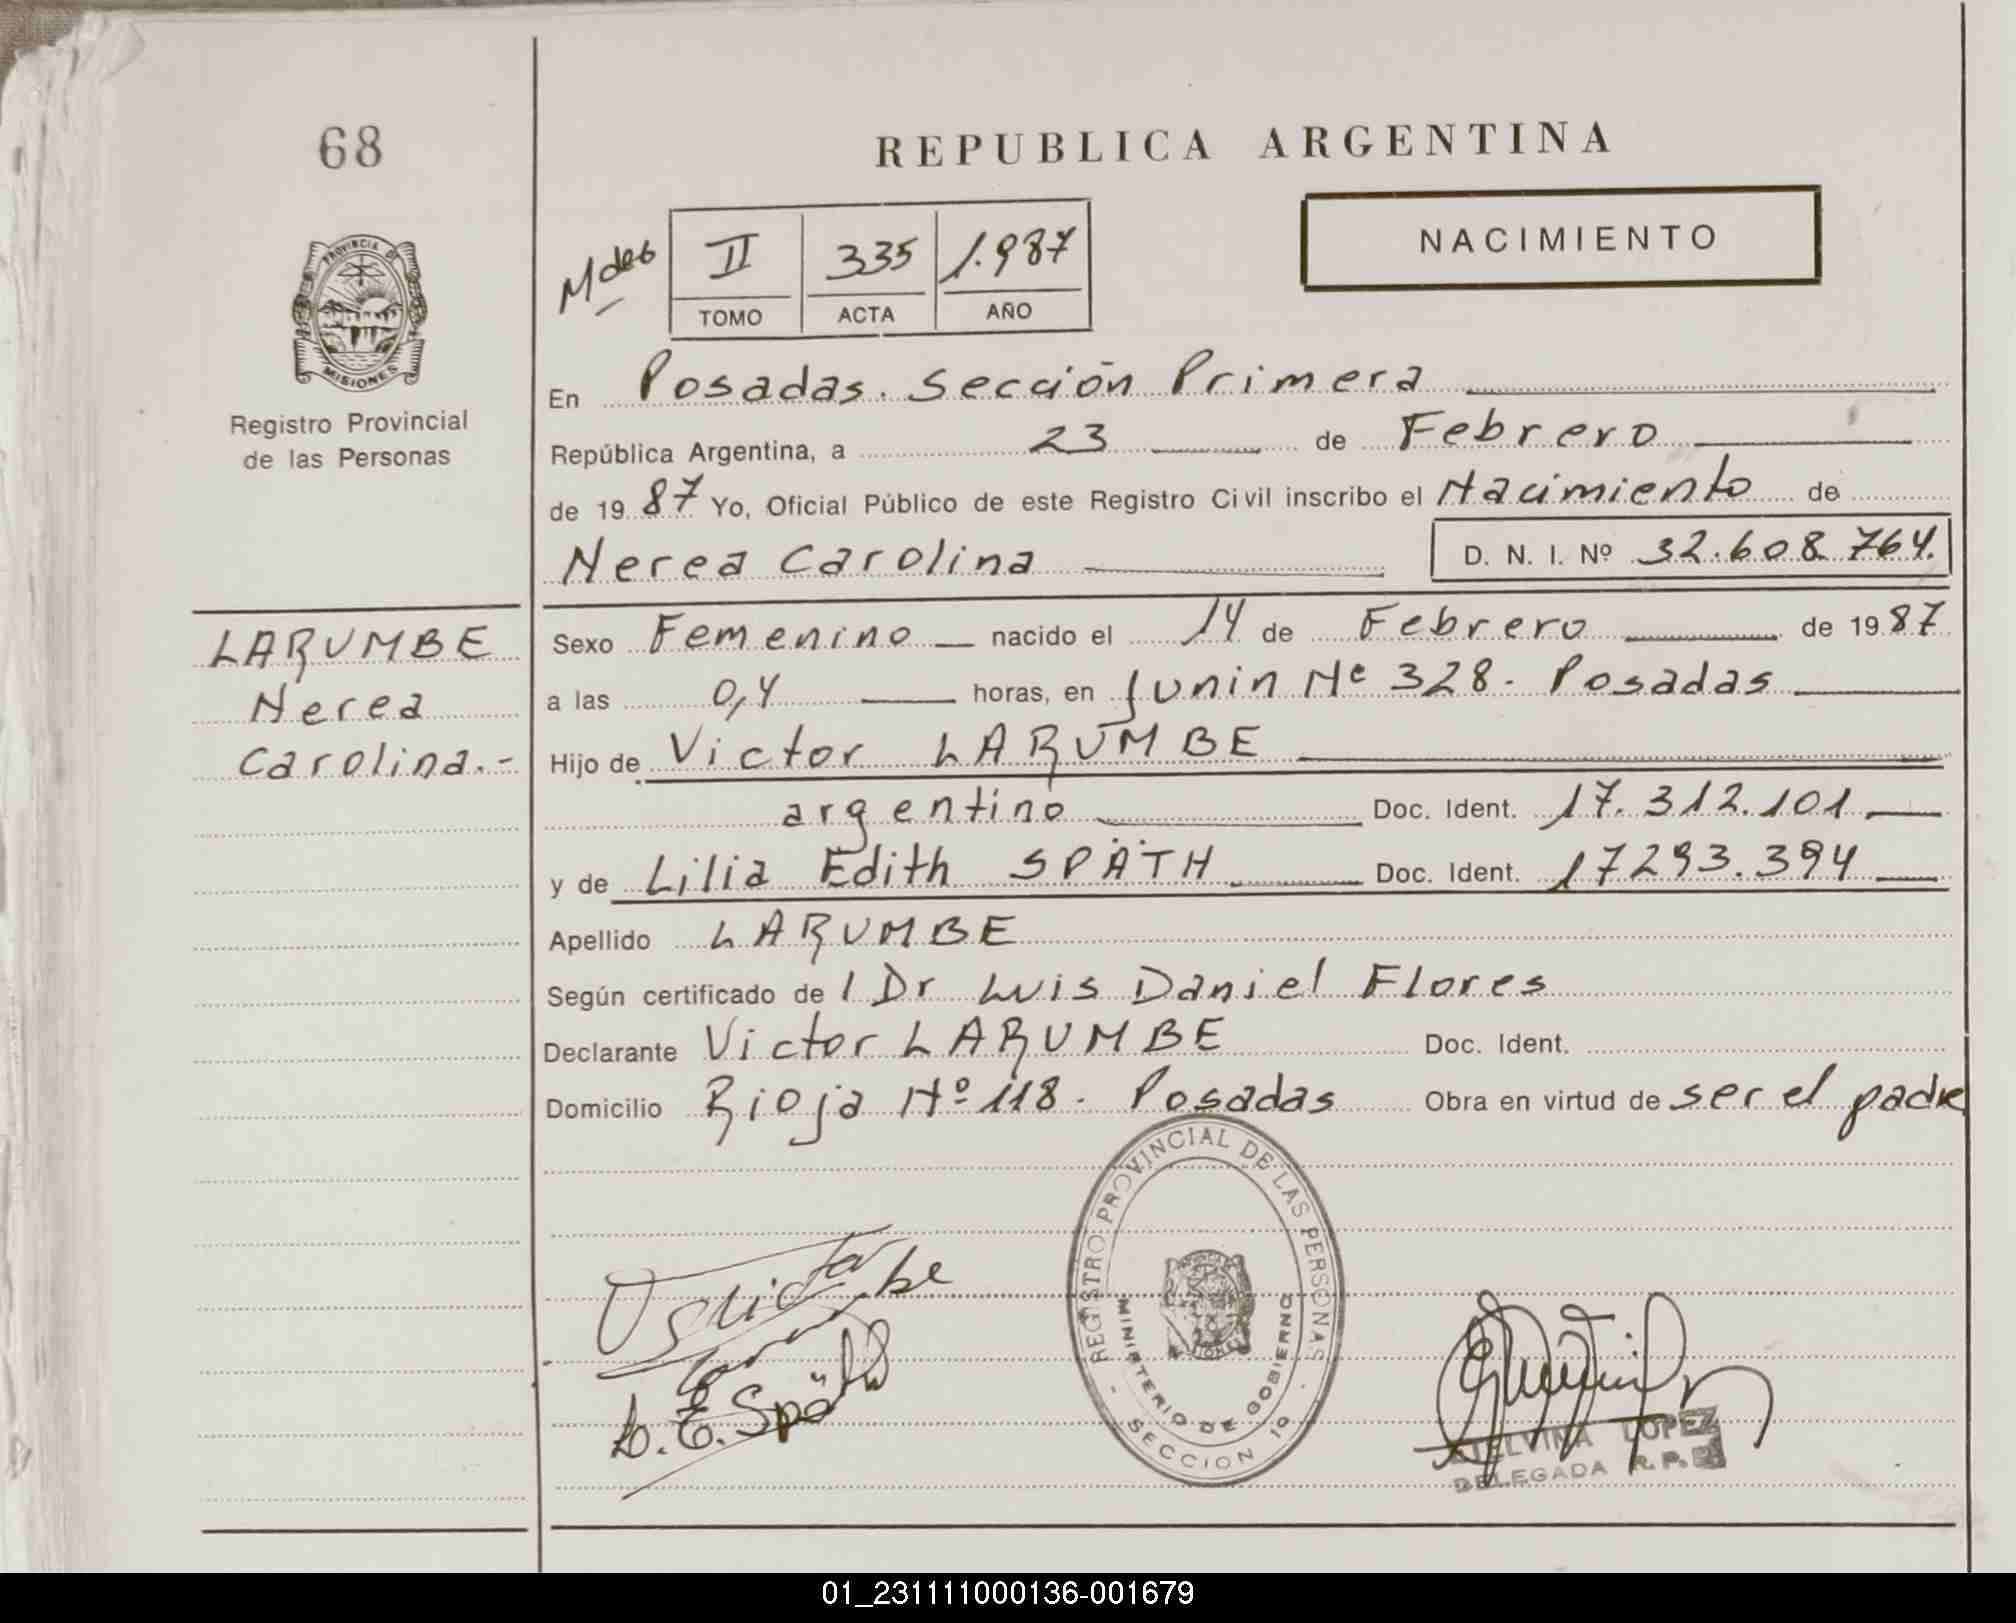 68
REPUBLICA ARGENTINA
NACIMIENTO
II 335 1.987
TOMO ACTA AÑO
PROVINCIA DE MISIONES
Registro Provincial
de las Personas
En Posadas. Sección Primera
República Argentina, a 23 de Febrero
de 1987 Yo, Oficial Público de este Registro Civil inscribo el Nacimiento de
Nerea Carolina D. N. I. Nº 32.608.764.
LARUMBE
Nerea
Carolina.-
Sexo Femenino nacido el 14 de Febrero de 1987
a las 0,4 horas, en Junin Nº 328. Posadas
Hijo de Victor LARUMBE
argentino Doc. Ident. 17.312.101
y de Lilia Edith SPÄTH Doc. Ident. 17293.394
Apellido LARUMBE
Según certificado de l Dr Luis Daniel Flores
Declarante Victor LARUMBE Doc. Ident.
Domicilio Rioja Nº 118. Posadas Obra en virtud de ser el padre
REGISTRO PROVINCIAL DE LAS PERSONAS
MINISTERIO DE GOBIERNO
- SECCION 1º -
L. E. Späth
LOPEZ
DELEGADA R. P.
01_231111000136-001679